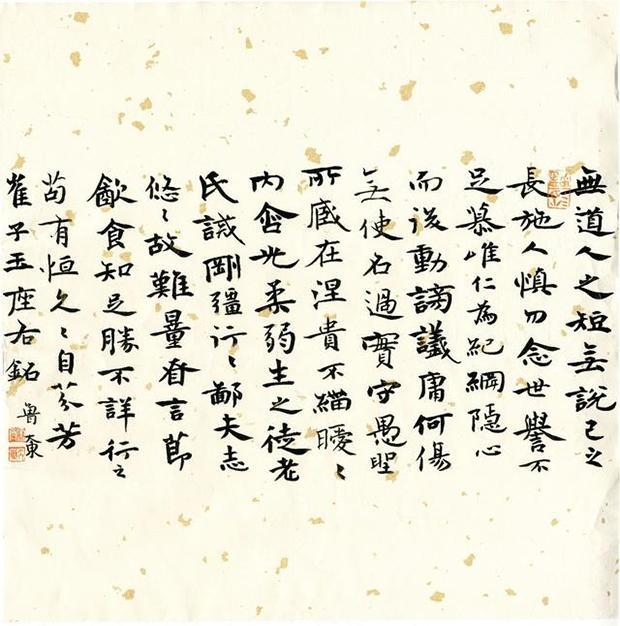 無道人之短無說己之
長施人慎勿念世譽不
足慕唯仁為紀綱隱心
而後動謗議庸何傷
無使名過實守愚聖
所臧在涅貴不緇曖〻
內含光柔弱生之徒老
氏誡剛彊行〻鄙夫志
悠〻故難量眘言節
飲食知足勝不詳行之
苟有恒久〻自芬芳
崔子玉座右銘 魯